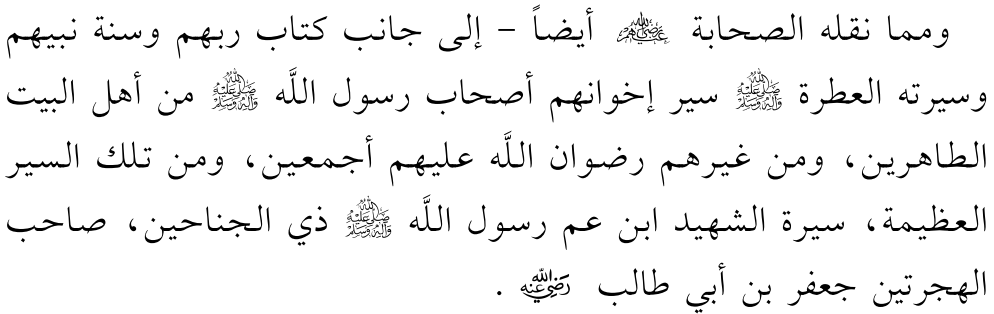 ومما نقله الصحابة رضي الله عنهم أيضاً – إلى جانب كتاب ربهم وسنة نبيهم
وسيرته العطرة صلى الله عليه وآله وسلم سير إخوانهم أصحاب رسول اللَّه صلى الله عليه وآله وسلم من أهل البيت
الطاهرين، ومن غيرهم رضوان اللَّه عليهم أجمعين، ومن تلك السير
العظيمة، سيرة الشهيد ابن عم رسول اللَّه صلى الله عليه وآله وسلم ذي الجناحين، صاحب
الهجرتين جعفر بن أبي طالب رضي الله عنه .